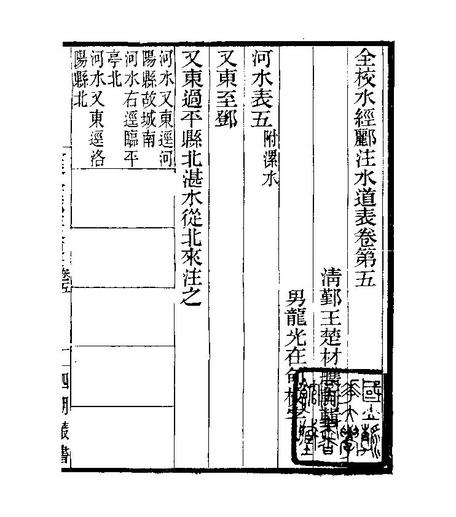 全校水經酈注水道表卷第五
清鄞王楚材
男龍光在
河水表五 附漯水
又東至鄧
又東過平縣北湛水從北來注之
河水又東逕河
陽縣故城南
河水右逕臨平
亭北
河水又東逕洛
陽縣北
四明叢書